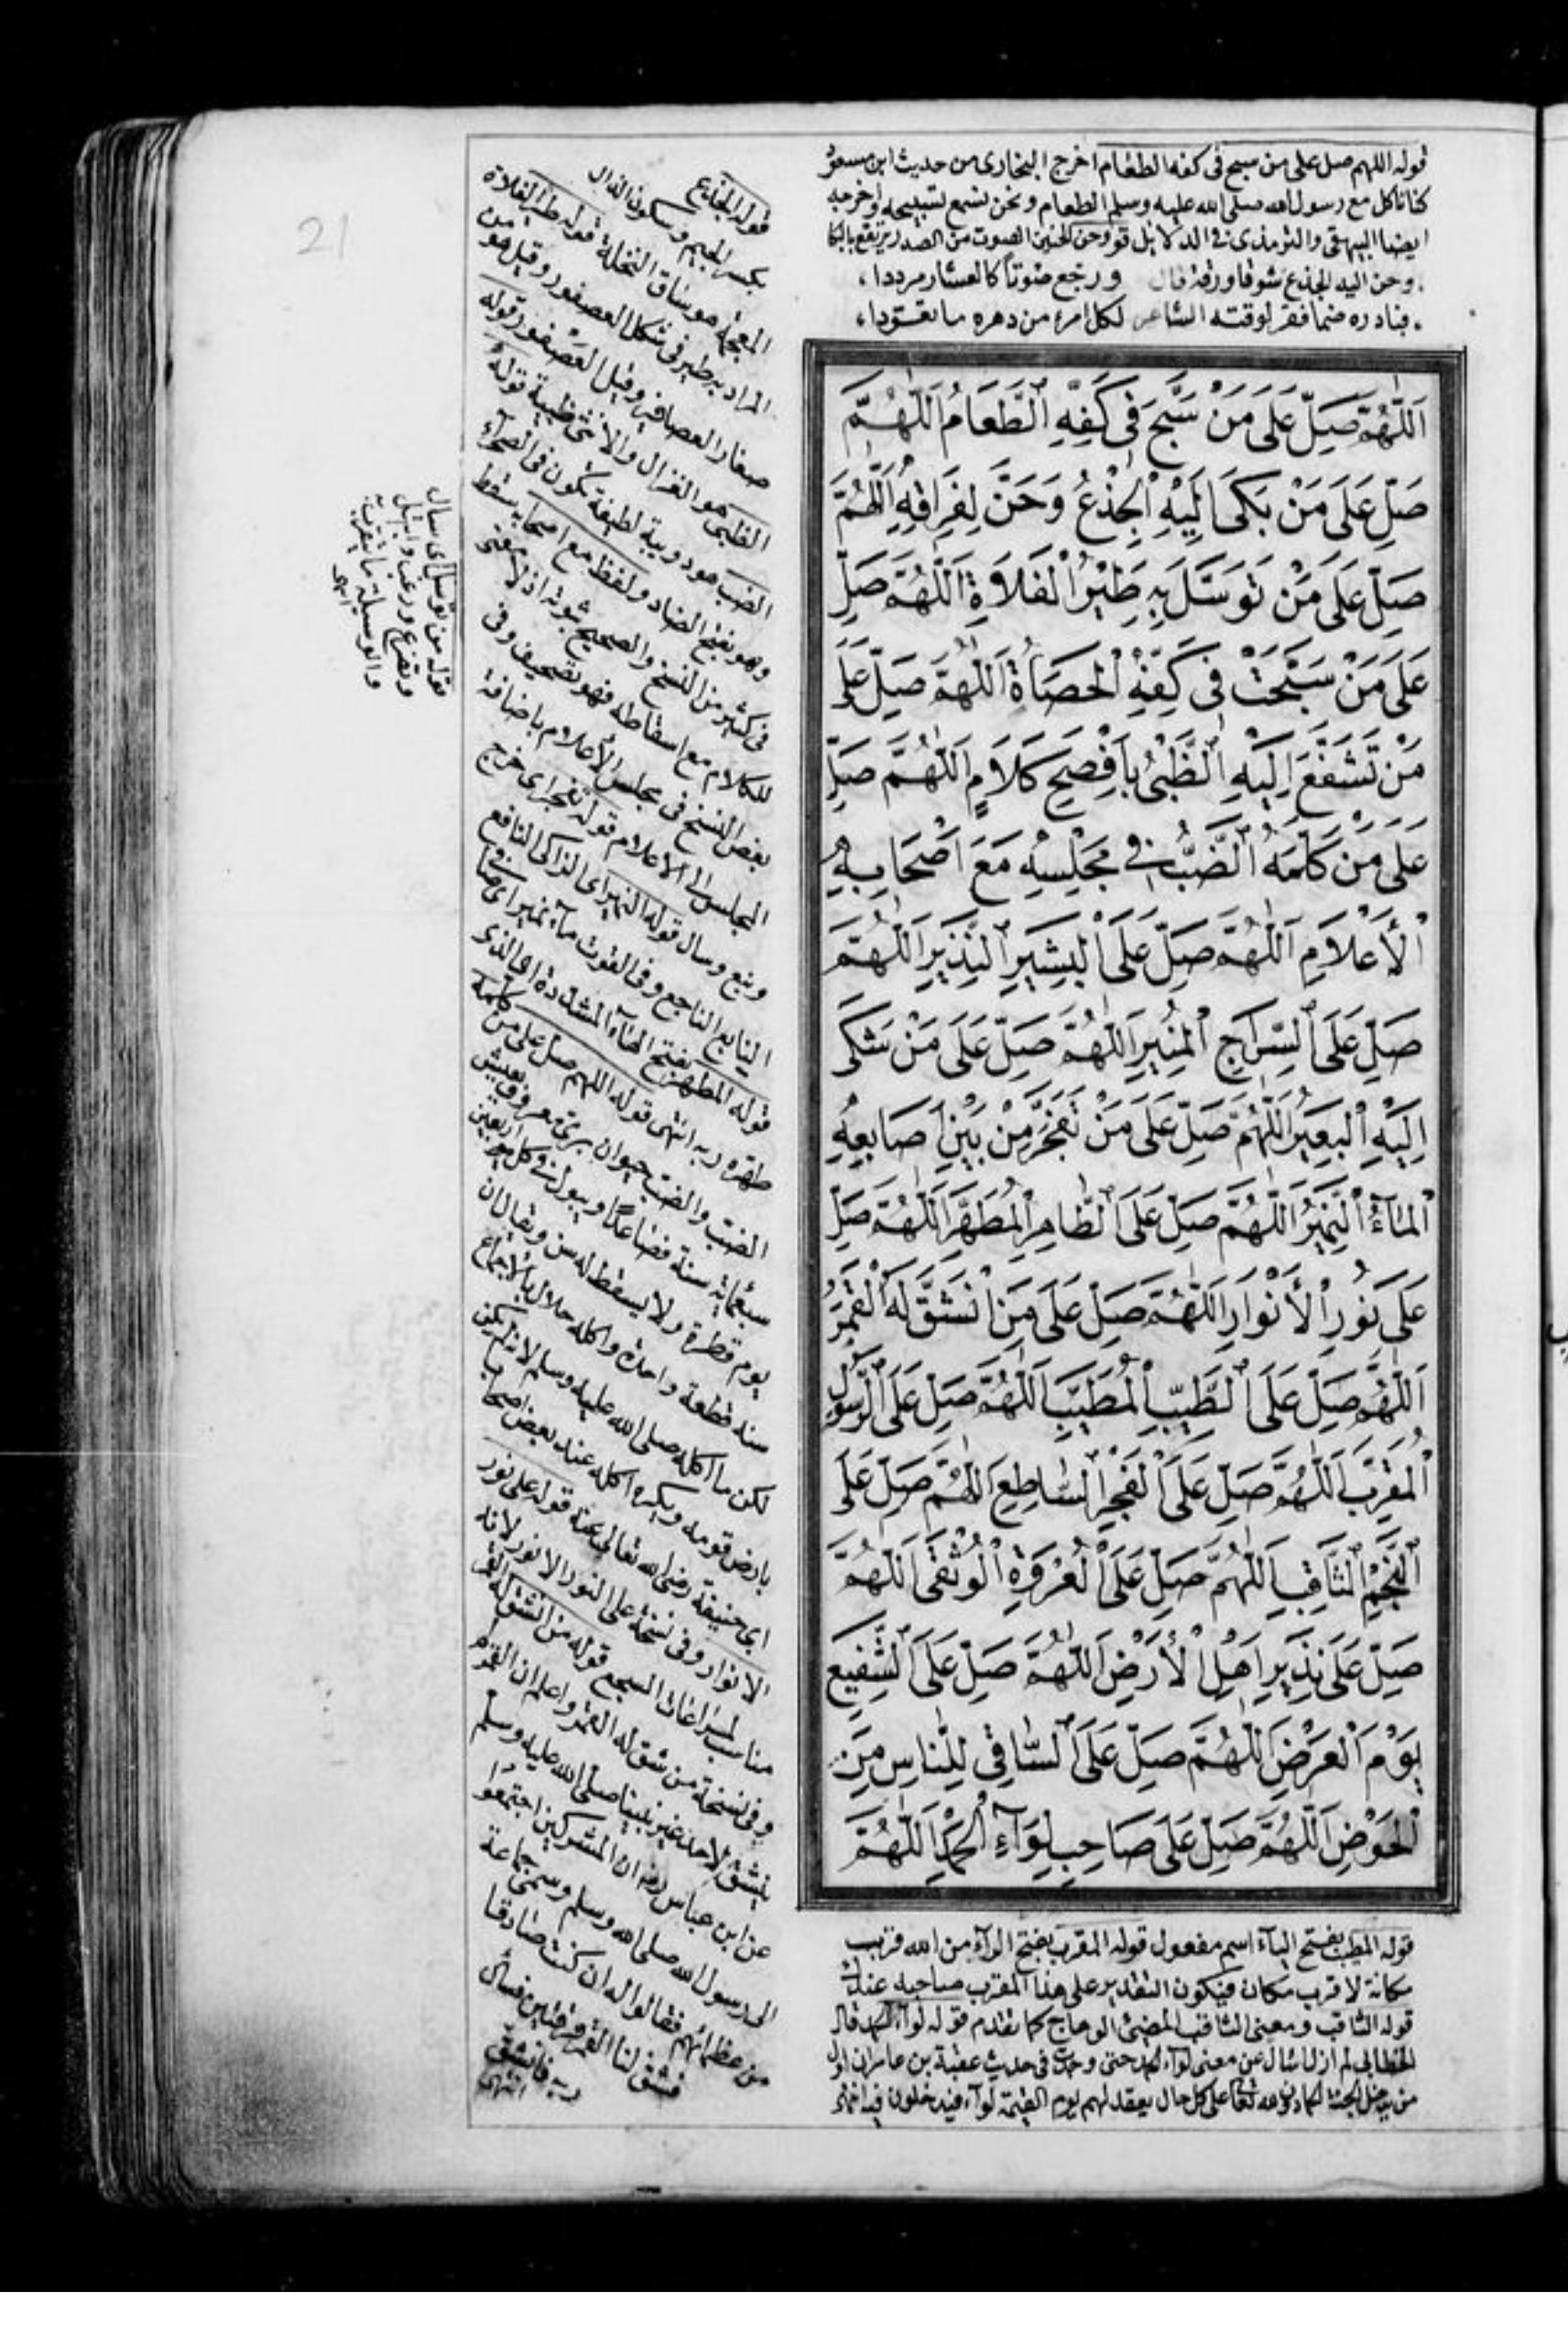 21
قوله اللهم صل على من سبح فى كفه الطعام اخرج البخارى من حديث ابن مسعود
كنا ناكل مع رسول الله صلى الله عليه وسلم الطعام ونحن نسمع تسبيحه واخرجه
ايضا البيهقى والترمذى فى الدلائل قو وحن الحنين الصوت من الصدر
وحن اليه الجذع شوقا ورقة قال ورجع صوتا كالعشار مرددا
فبادره ضما فقر لوقته الشاعر لكل امرء من دهره ما تعودا
اَللّٰهُمَّ صَلِّ عَلَى مَنْ سَبَّحَ فِى كَفِّهِ الطَّعَامُ اَللّٰهُمَّ
صَلِّ عَلَى مَنْ بَكَى اِلَيْهِ الْجِذْعُ وَحَنَّ لِفِرَاقِهِ اَللّٰهُمَّ
صَلِّ عَلَى مَنْ تَوَسَّلَ بِهِ طَيْرُ الْفَلَاةِ اَللّٰهُمَّ صَلِّ
عَلَى مَنْ سَبَّحَتْ فِى كَفِّهِ الْحَصَاةُ اَللّٰهُمَّ صَلِّ عَلَى
مَنْ تَشَفَّعَ اِلَيْهِ الظَّبْىُ بِاَفْصَحِ كَلَامٍ اَللّٰهُمَّ صَلِّ
عَلَى مَنْ كَلَّمَهُ الضَّبُّ فِى مَجْلِسِهِ مَعَ اَصْحَابِهِ
الْأَعْلَامِ اَللّٰهُمَّ صَلِّ عَلَى الْبَشِيرِ النَّذِيرِ اَللّٰهُمَّ
صَلِّ عَلَى السِّرَاجِ الْمُنِيرِ اَللّٰهُمَّ صَلِّ عَلَى مَنْ شَكَى
اِلَيْهِ الْبَعِيرُ اَللّٰهُمَّ صَلِّ عَلَى مَنْ تَفَجَّرَ مِنْ بَيْنِ اَصَابِعِهِ
الْمَآءُ النَّمِيرُ اَللّٰهُمَّ صَلِّ عَلَى الطَّاهِرِ الْمُطَهَّرِ اَللّٰهُمَّ صَلِّ
عَلَى نُورِ الْأَنْوَارِ اَللّٰهُمَّ صَلِّ عَلَى مَنِ انْشَقَّ لَهُ الْقَمَرُ
اَللّٰهُمَّ صَلِّ عَلَى الطَّيِّبِ الْمُطَيَّبِ اَللّٰهُمَّ صَلِّ عَلَى الرَّسُولِ
الْمُقَرَّبِ اَللّٰهُمَّ صَلِّ عَلَى الْفَجْرِ السَّاطِعِ اَللّٰهُمَّ صَلِّ عَلَى
النَّجْمِ الثَّاقِبِ اَللّٰهُمَّ صَلِّ عَلَى الْعُرْوَةِ الْوُثْقَى اَللّٰهُمَّ
صَلِّ عَلَى نَذِيرِ اَهْلِ الْأَرْضِ اَللّٰهُمَّ صَلِّ عَلَى الشَّفِيعِ
يَوْمَ الْعَرْضِ اَللّٰهُمَّ صَلِّ عَلَى السَّاقِى لِلنَّاسِ مِنَ
الْحَوْضِ اَللّٰهُمَّ صَلِّ عَلَى صَاحِبِ لِوَآءِ الْحَمْدِ اَللّٰهُمَّ
قوله المطيب بفتح الياء اسم مفعول قوله المقرب بفتح الراء من الله قرب
مكانة لا قرب مكان فيكون التقدير على هذا المقرب صاحبه عند
قوله الثاقب ومعنى الثاقب المضئ الوهاج كما تقدم قوله لواء الحمد قال
الخطابى لم ازل اسال عن معنى لواء الحمد حتى وجدت فى حديث عقبة بن عامر ان اول
من يدخل الجنة الحمادون لله تعا على كل حال يعقد لهم يوم القيمة لواء فيدخلون
قوله الجذع
بكسر الجيم وسكون الذال
المعجمة هو ساق النخلة قوله طير الفلاة
المراد به طير فى شكل العصفور وقيل هو من
صغار العصافير وقيل العصفور قوله
الظبى هو الغزال والانثى ظبية قوله
الضب هو دويبة لطيفة تكون فى الصحراء
وهو بفتح الضاد ولفظ مع اصحابه سقط
فى كثير من النسخ والصحيح ثبوته اذ لا معنى
للكلام مع اسقاطه فهو تصحيف وفى
بعض النسخ فى مجلس الأعلام باضافة
المجلس الى الاعلام قوله تفجر اى خرج
ونبع وسال قوله النمير اى الزاكى النافع
قوله المطهر بفتح الهاء المشددة اى الذى
طهره ربه انتهى قوله اللهم صل على من كلمه
الضب والضب حيوان برى معروف يعيش
سبعمائة سنة فصاعدا ويبول فى كل اربعين
يوم قطرة ولا يسقط له سن ويقال ان
سنه قطعة واحدة واكله حلال بالاجماع
لكن ما اكله صلى الله عليه وسلم لانه لم يكن
بارض قومه ويكره اكله عند بعض اصحاب
ابى حنيفة رضى الله تعالى عنه قوله على نور
الانوار وفى نسخة على النور الانور لانه
مناسب لمراعات السجع قوله من انشق له القمر
وفى نسخة من شق له القمر واعلم ان القمر لم
ينشق لاحد غير نبينا صلى الله عليه وسلم
عن ابن عباس رضه ان المشركين اجتمعوا
الى رسول الله صلى الله وسلم وسمى جماعة
من عظمائهم فقالوا له ان كنت صادقا
فشق لنا القمر فرقتين فسأل
ربه فانشق
انتهى
قوله من توسل اى سال
وتضرع ورغب وابتهل
والوسيلة ما يتقرب به